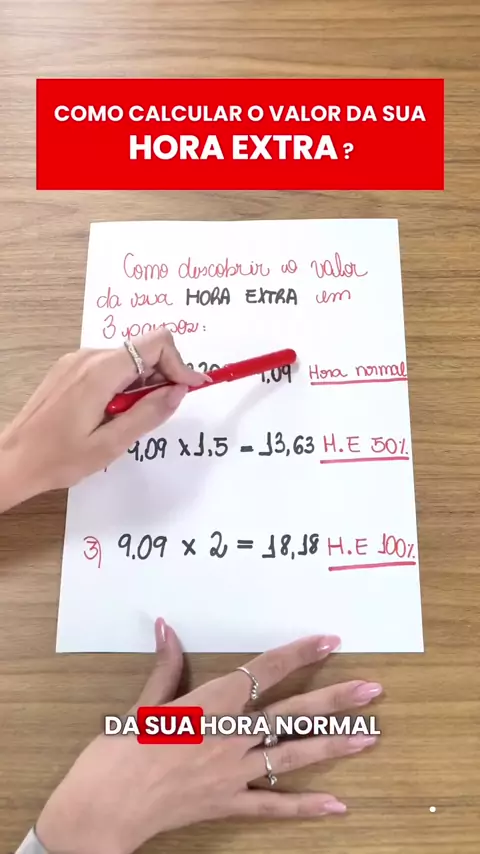 COMO CALCULAR O VALOR DA SUA
HORA EXTRA ?
Como descobrir o valor
da sua HORA EXTRA em
3 passos:
9,09 Hora normal
9,09 x 1,5 = 13,63 H.E 50%
3) 9,09 x 2 = 18,18 H.E 100%
DA SUA HORA NORMAL